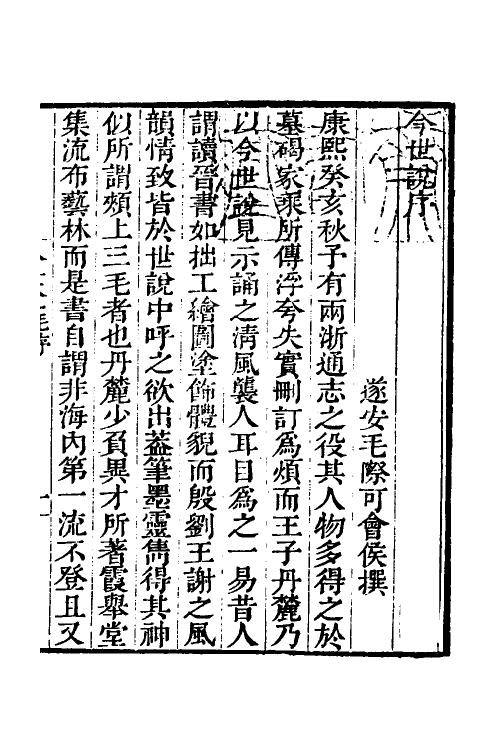 今世說序
遂安毛際可會侯撰
康熙癸亥秋予有兩浙通志之役其人物多得之於
墓碣家乘所傳浮夸失實刪訂為煩而王子丹麓乃
以今世說見示誦之清風襲人耳目為之一易昔人
謂讀晉書如拙工繪圖塗飾體貌而殷劉王謝之風
韻情致皆於世說中呼之欲出葢筆墨靈雋得其神
似所謂頰上三毛者也丹麓少負異才所著霞舉堂
集流布藝林而是書自謂非海內第一流不登且又